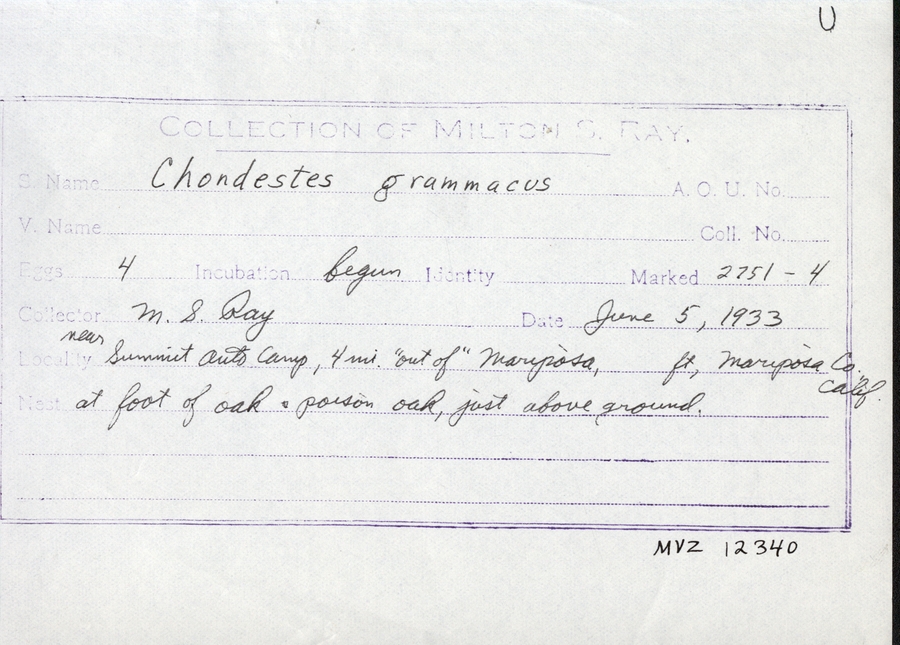 U
COLLECTION OF MILTON S. RAY.
S. Name Chondestes grammacus A. O. U. No.
V. Name Coll. No.
Eggs 4 Incubation begun Identity Marked 2751 - 4
Collector M. S. Ray Date June 5, 1933
near
Locality Summit Auto Camp, 4 mi. "out of" Mariposa, ft, Mariposa Co.
Calif.
Nest at foot of oak & poison oak, just above ground.
MVZ 12340